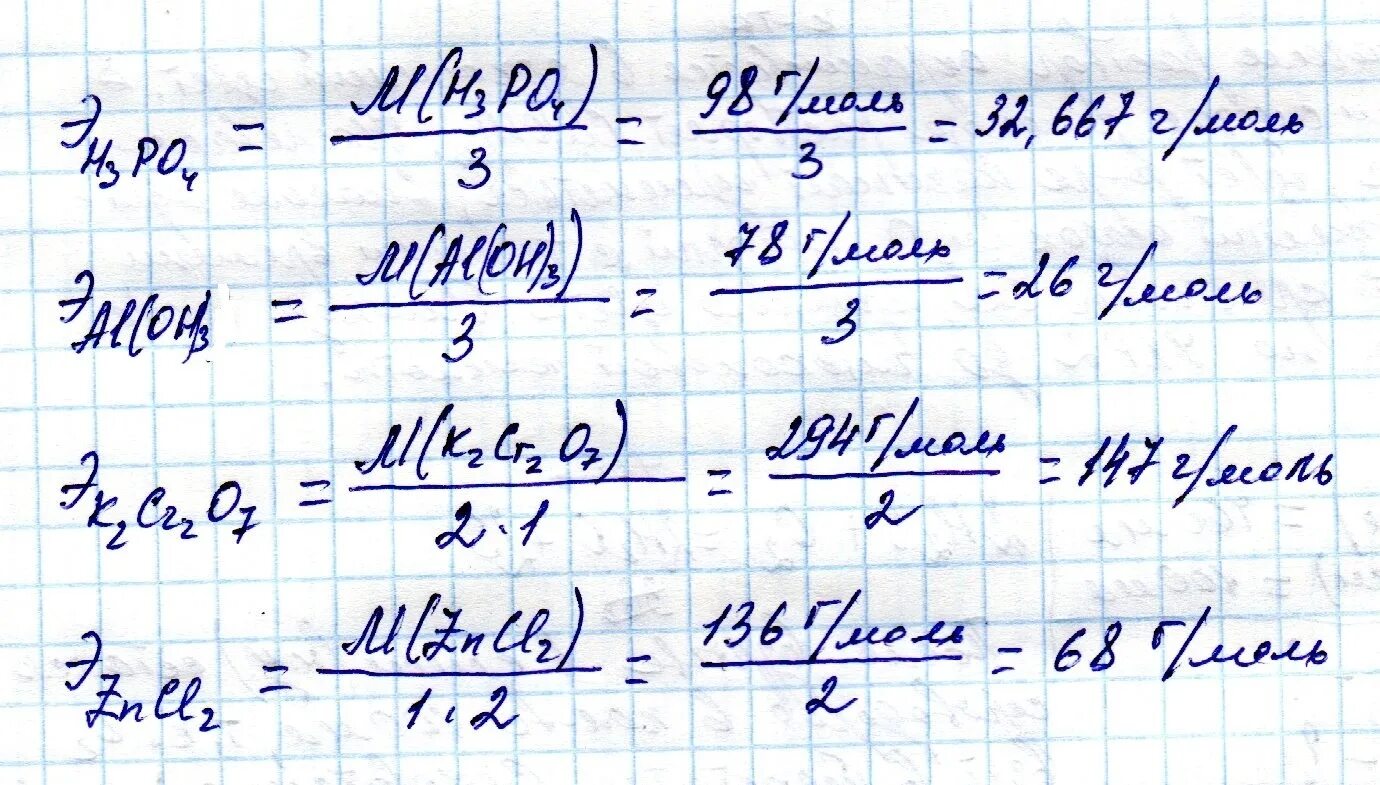 Э H₃PO₄ = M(H₃PO₄) / 3 = 98 г/моль / 3 = 32,667 г/моль
Э Al(OH)₃ = M(Al(OH)₃) / 3 = 78 г/моль / 3 = 26 г/моль
Э K₂Cr₂O₇ = M(K₂Cr₂O₇) / 2·1 = 294 г/моль / 2 = 147 г/моль
Э ZnCl₂ = M(ZnCl₂) / 1·2 = 136 г/моль / 2 = 68 г/моль